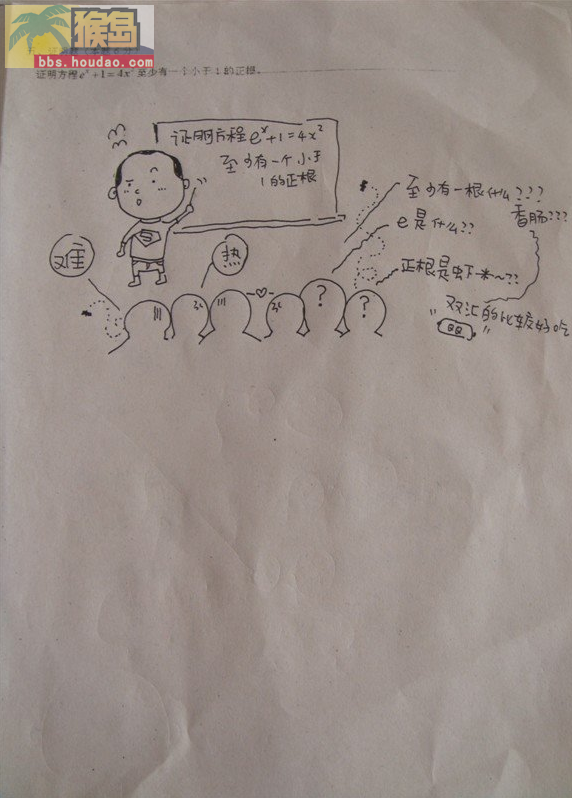 猴岛
bbs.houdao.com
证明方程e^x+1=4x^2至少有一个小于1的正根。
证明方程e^x+1=4x^2
至少有一个小于
1的正根
至少有一根什么???
香肠???
e是什么??
正根是虾米~??
双汇的比较好吃
"QQ"
难
热
?
?